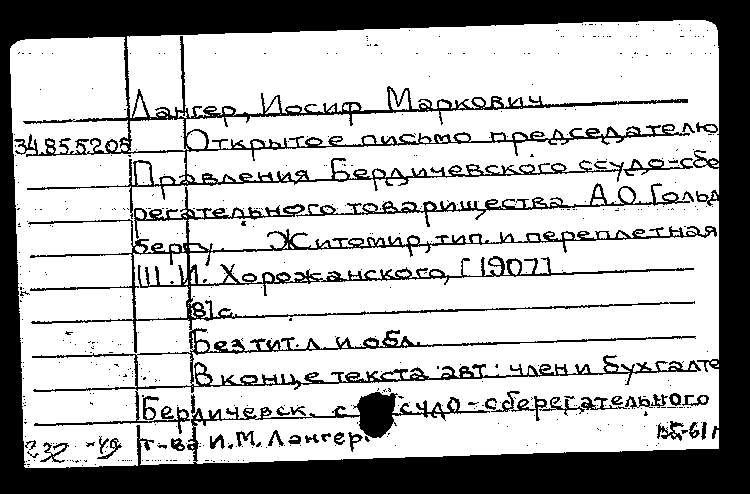 Лангер, Иосиф Маркович
34.85.5208 Открытое письмо председателю
Правления Бердичевского ссудо-сбе
регательного товарищества А.О. Гольд
бергу. Житомир, тип. и переплетная
Ш.И. Хорожанского, [1907]
[8] с.
Без тит. л. и обл.
В конце текста авт.: член и бухгалте
Бердичевск. с судо-сберегательного
т-ва И.М. Лангер.